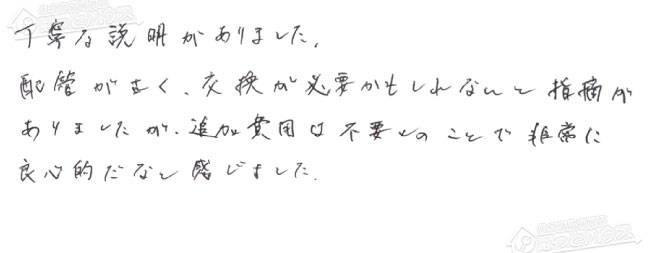 丁寧な説明がありました。
配管が古く、交換が必要かもしれないと指摘が
ありましたが、追加費用は不要とのことで非常に
良心的だなと感じました。